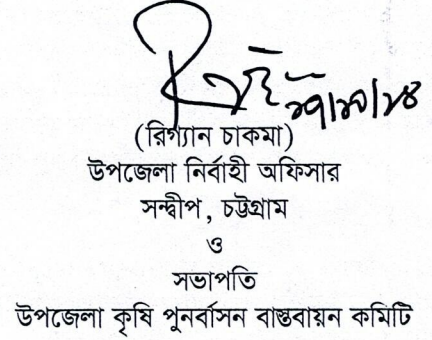 (রিগ্যান চাকমা)
উপজেলা নির্বাহী অফিসার
সন্দ্বীপ, চট্টগ্রাম
ও
সভাপতি
উপজেলা কৃষি পুনর্বাসন বাস্তবায়ন কমিটি